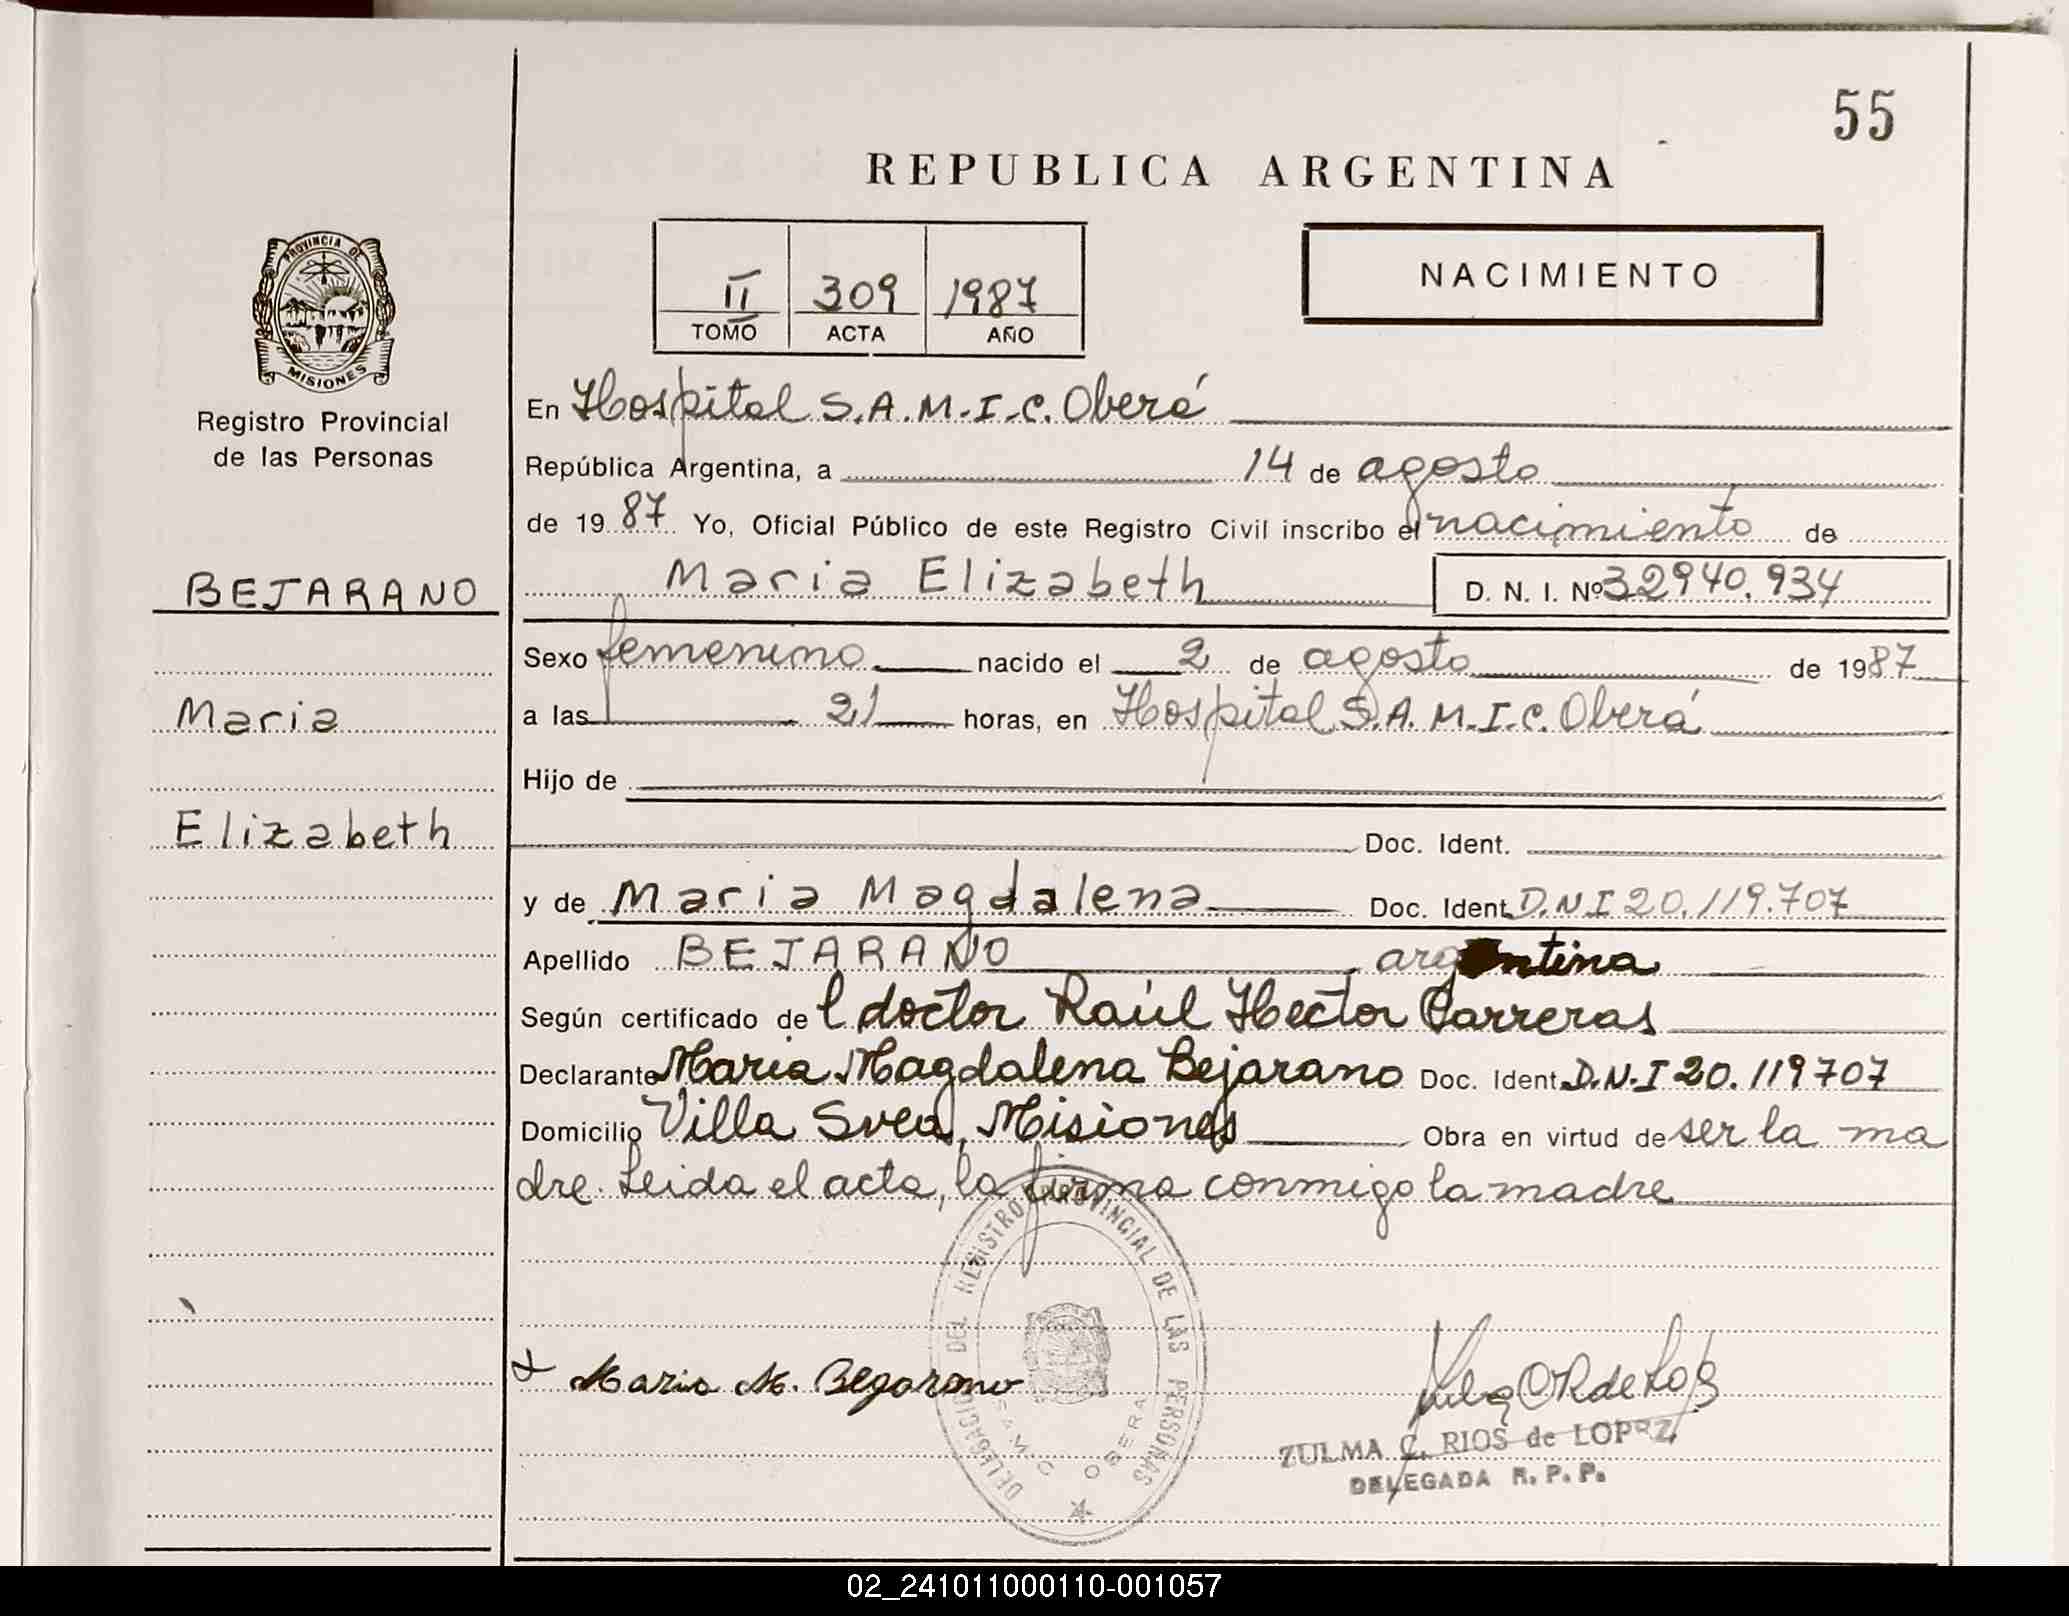 55
REPUBLICA ARGENTINA
PROVINCIA DE
MISIONES
Registro Provincial
de las Personas
BEJARANO
Maria
Elizabeth
II 309 1987
TOMO ACTA AÑO
NACIMIENTO
En Hospital S.A.M.I.C. Oberá
República Argentina, a 14 de agosto
de 1987 Yo, Oficial Público de este Registro Civil inscribo el nacimiento de
Maria Elizabeth D. N. I. Nº 32940.934
Sexo femenino nacido el 2 de agosto de 1987
a las 21 horas, en Hospital S.A.M.I.C. Oberá
Hijo de
Doc. Ident.
y de Maria Magdalena Doc. Ident. D.N.I 20.119.707
Apellido BEJARANO argentina
Según certificado de l doctor Raúl Hector Carreras
Declarante Maria Magdalena Bejarano Doc. Ident. D.N.I 20.119707
Domicilio Villa Svea, Misiones Obra en virtud de ser la ma
dre. Leida el acta, la firma conmigo la madre
DELEGACION DEL REGISTRO PROVINCIAL DE LAS PERSONAS
SAMIC OBERA
Maria M. Begarano
ZULMA C. RIOS de LOPEZ
DELEGADA R. P. P.
02_241011000110-001057